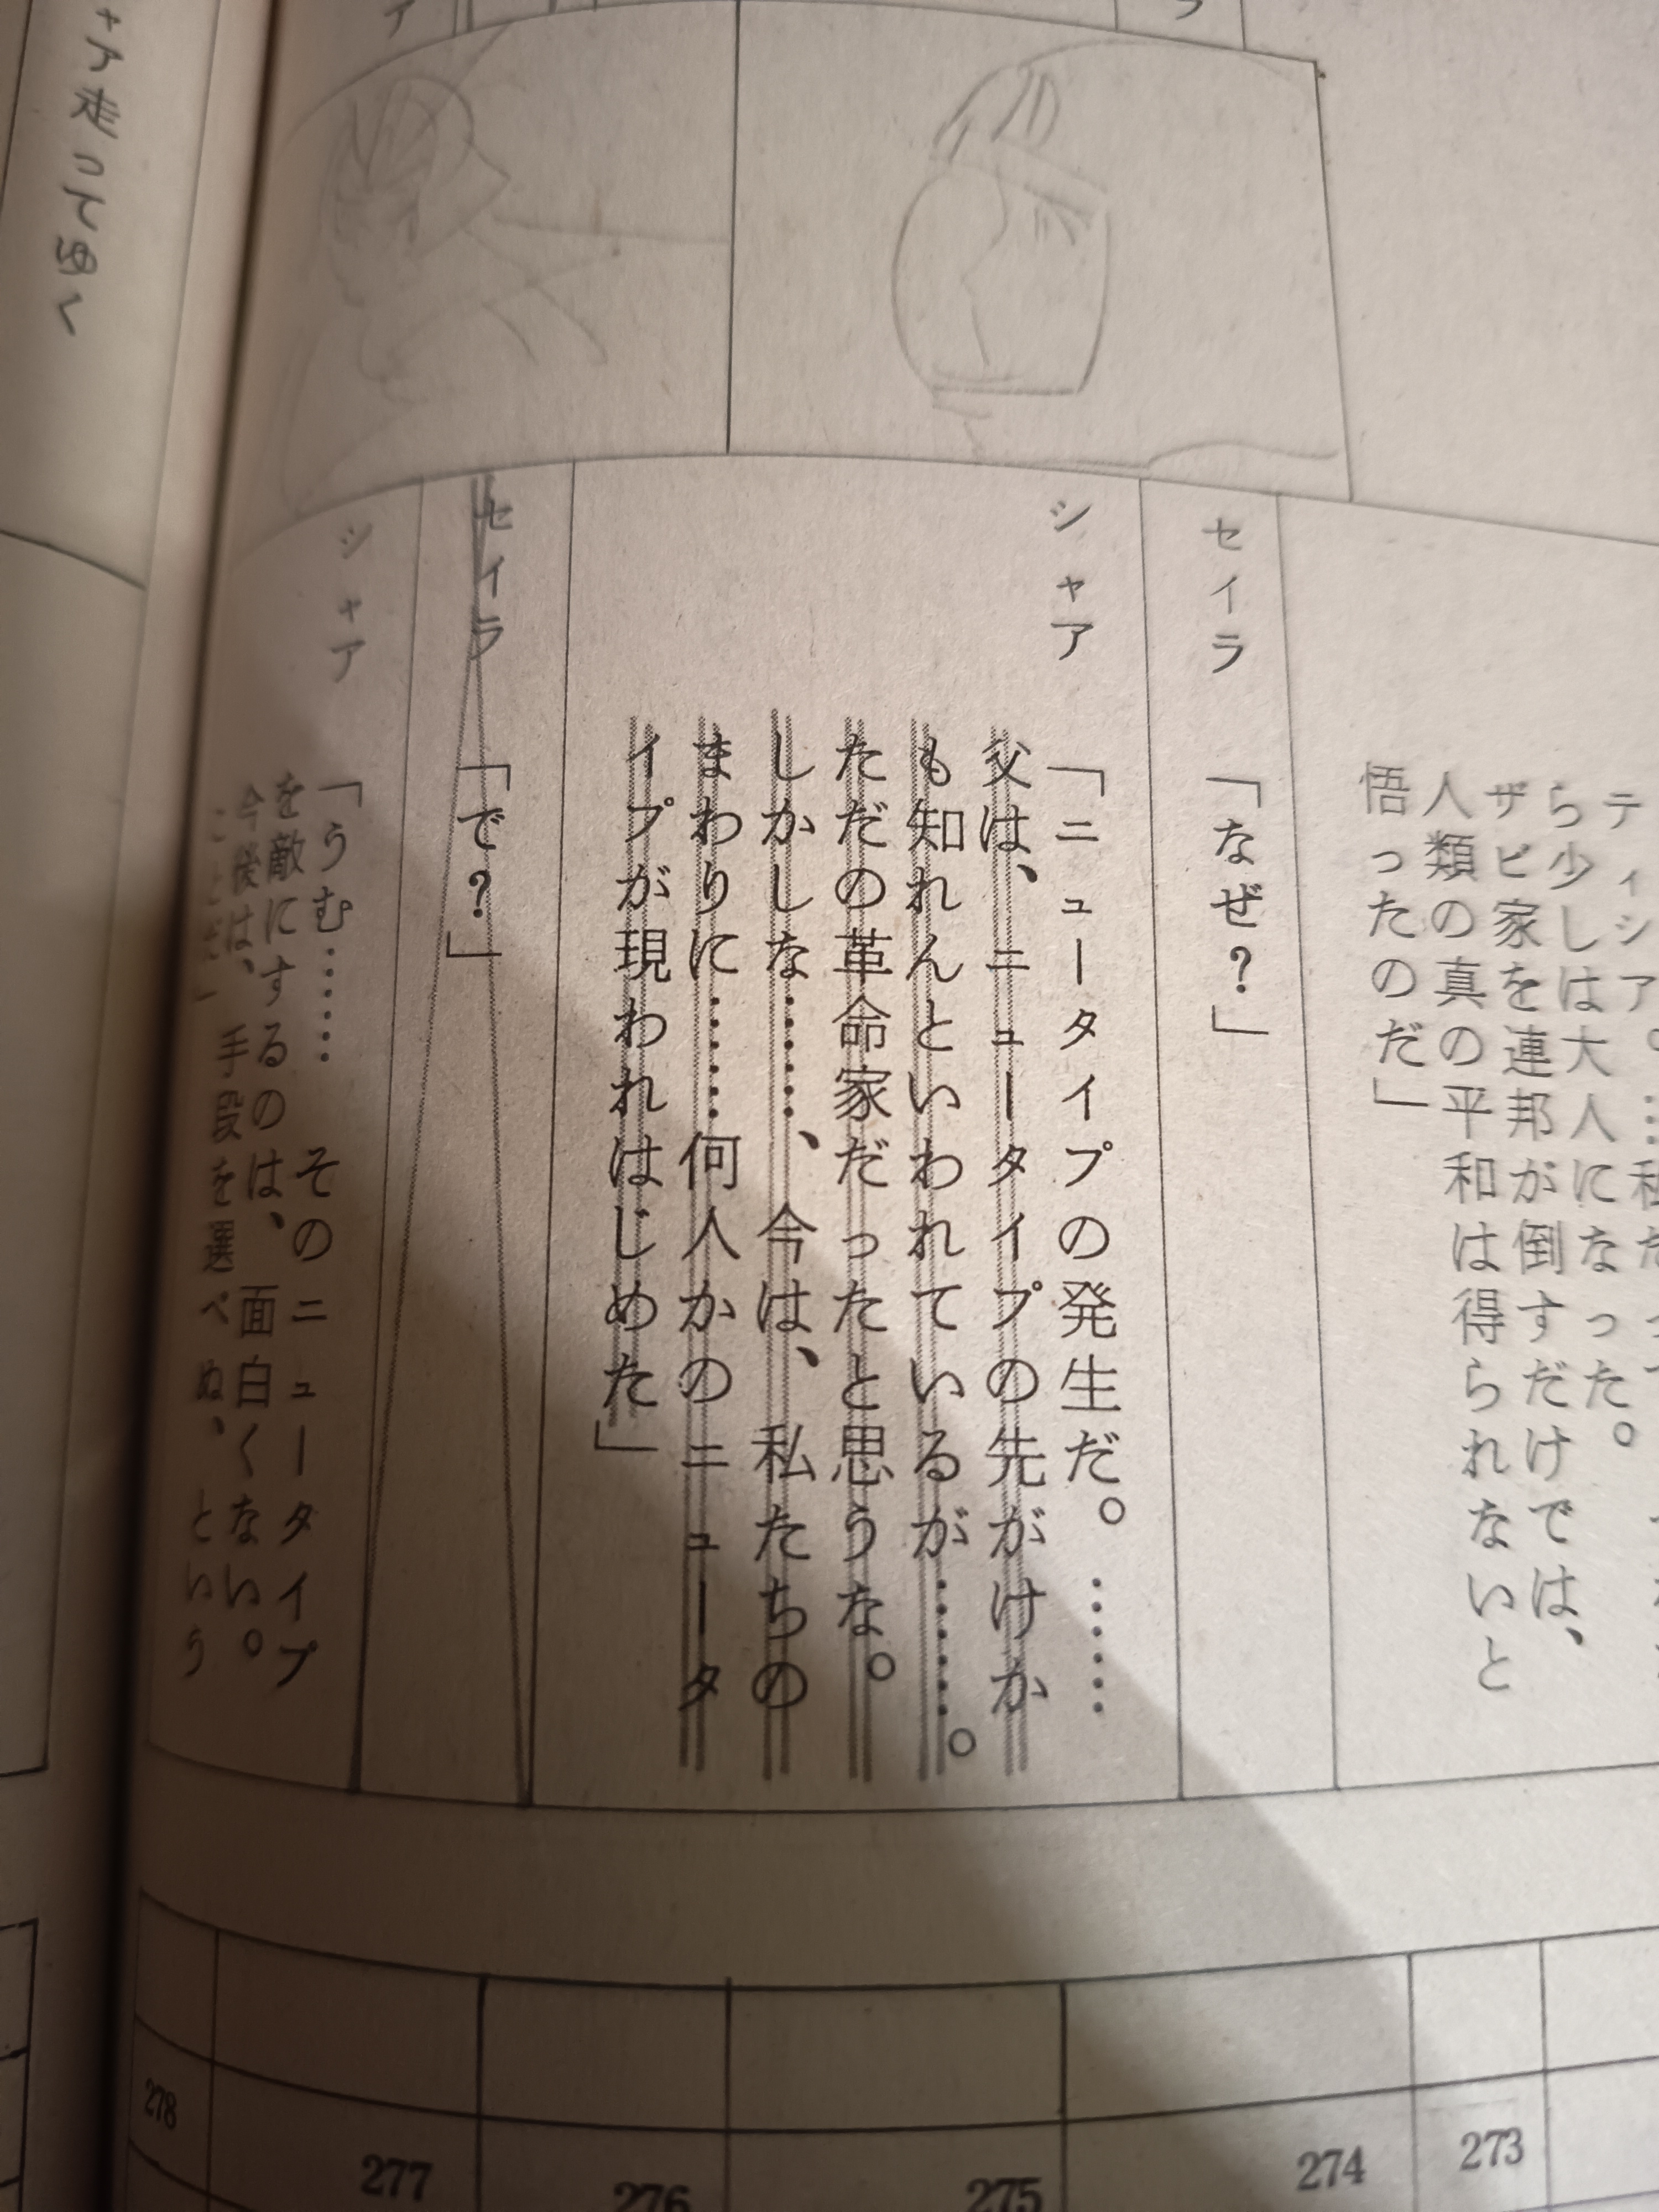 ティシア。
ら少しは大人になった。
ザビ家を連邦が倒すだけでは、
人類の真の平和は得られないと
悟ったのだ」
セイラ
「なぜ?」
シャア
「ニュータイプの発生だ。……
父は、ニュータイプの先がけか
も知れんといわれているが……。
ただの革命家だったと思うな。
しかしな……、今は、私たちの
まわりに……何人かのニュータ
イプが現われはじめた」
セイラ
「で?」
シャア
「うむ…… そのニュータイプ
を敵にするのは、面白くない。
今後は、手段を選べぬ、という
ア走ってゆく
273
274
275
276
277
278